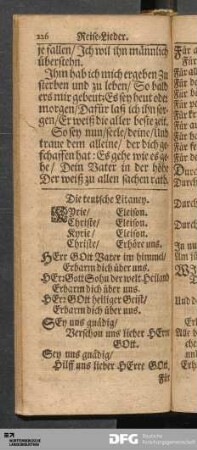 226 Reise-Lieder.
je fallen/ Ich wil ihn männlich
überstehn.
Ihm hab ich mich ergeben Zu
sterben und zu leben/ So bald
er mir gebeut: Es sey heut oder
morgen/ Dafür laß ich ihn sor-
gen/ Er weiß die aller beste zeit.
So sey nun/ seele/ deine/ Und
traue dem alleine/ der dich ge-
schaffen hat: Es gehe wie es ge-
he/ Dein Vater in der höhe
Der weiß zu allen sachen rath.
Die teutsche Litaney.
KYrie/ Eleison.
Christe/ Eleison.
Kyrie/ Eleison.
Christe/ Erhöre uns.
HErr GOtt Vater im himmel/
Erbarm dich über uns.
HErr Gott Sohn der welt Heiland
Erbarm dich über uns.
HErr GOtt heiliger Geist/
Erbarm dich über uns.
SEy uns gnädig/
Verschon uns lieber HErre
GOtt.
Sey uns gnädig/
Hilff uns lieber HErre GOtt.
Für
DFG Deutsche
Forschungsgemeinschaft